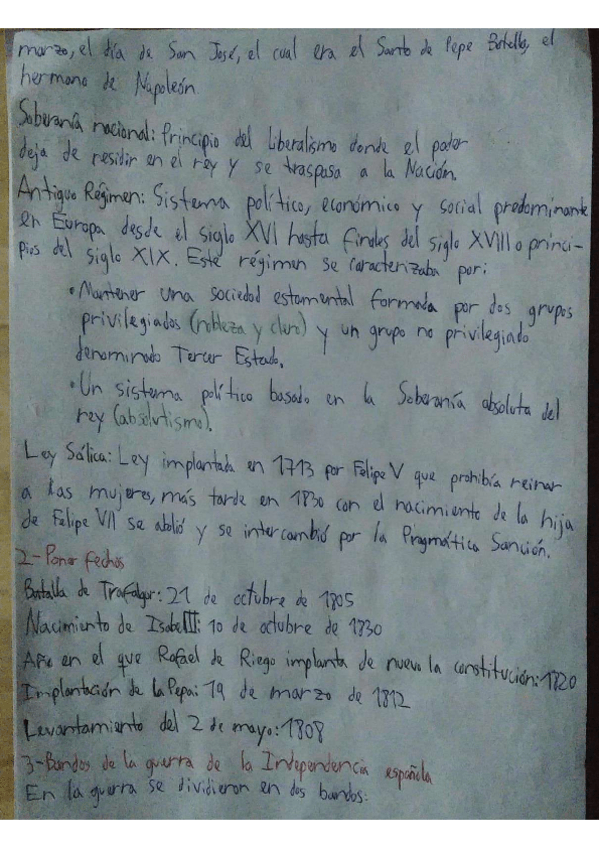 marzo, el día de San José, el cual era el Santo de Pepe Botella, el
hermano de Napoleón
Soberanía nacional: Principio del Liberalismo donde el poder
deja de residir en el rey y se traspasa a la Nación.
Antiguo Régimen: Sistema político, económico y social predominante
en Europa desde el siglo XVI hasta finales del siglo XVIII o princi-
pios del siglo XIX. Este régimen se caracterizaba por:
• Mantener una sociedad estamental formada por dos grupos
privilegiados (nobleza y clero) y un grupo no privilegiado
denominado Tercer Estado.
• Un sistema político basado en la Soberanía absoluta del
rey (absolutismo).
Ley Sálica: Ley implantada en 1713 por Felipe V que prohibía reinar
a las mujeres, más tarde en 1830 con el nacimiento de la hija
de Felipe VII se abolió y se intercambió por la Pragmática Sanción.
2- Poner fechas
Batalla de Trafalgar: 21 de octubre de 1805
Nacimiento de Isabel II: 10 de octubre de 1830
Año en el que Rafael de Riego implanta de nuevo la constitución: 1820
Implantación de la Pepa: 19 de marzo de 1812
Levantamiento del 2 de mayo: 1808
3- Bandos de la guerra de la Independencia española
En la guerra se dividieron en dos bandos: